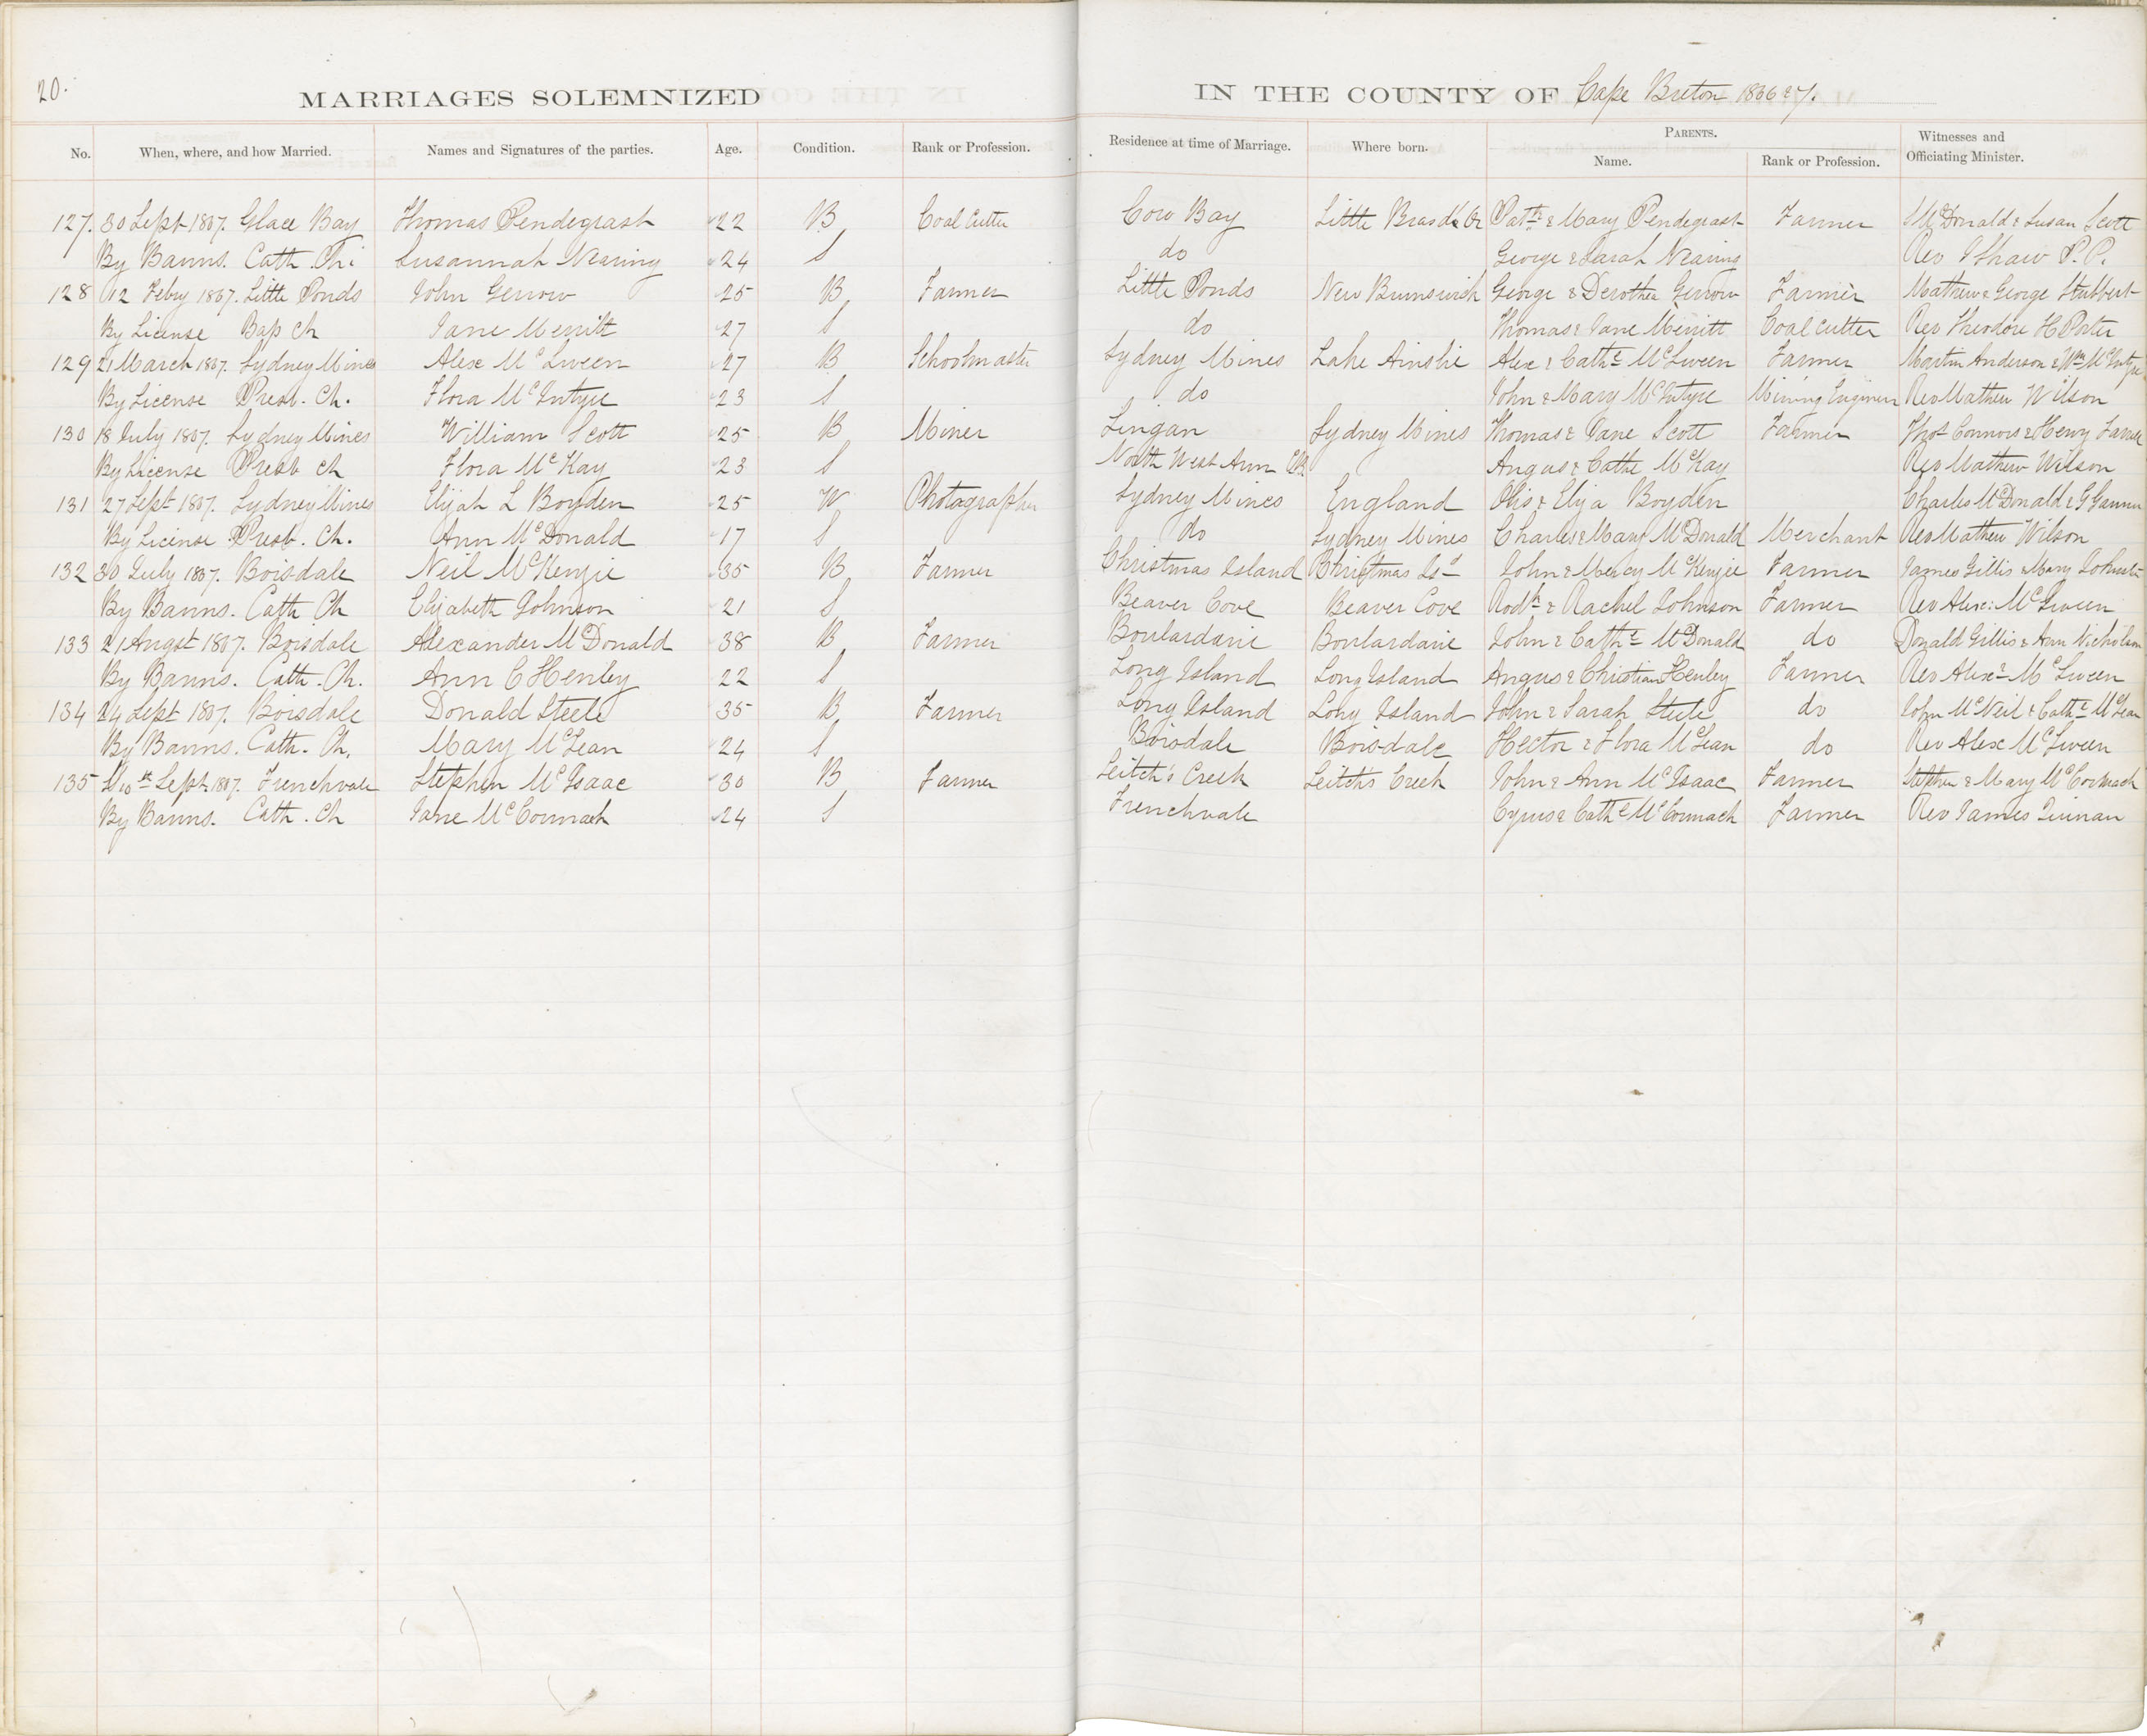 20.
MARRIAGES SOLEMNIZED IN THE COUNTY OF Cape Breton 1866 & 7.
No. When, where, and how Married. Names and Signatures of the parties. Age. Condition. Rank or Profession. Residence at time of Marriage. Where born. PARENTS. Name. Rank or Profession. Witnesses and Officiating Minister.
127. 30 Sept 1867. Glace Bay Thomas Pendegrast 22 B Coal Cutter Cow Bay Little Bras d'Or Patk & Mary Pendegrast Farmer M McDonald & Susan Scott
By Banns. Cath. Ch. Susannah Nearing 24 S do George & Sarah Nearing Rev J Shaw P.P.
128 12 Feby 1867. Little Ponds John Gerrow 25 B Farmer Little Ponds New Brunswick George & Dorothea Gerrow Farmer Mathew & George Stubbert
By License Bap Ch Jane Merritt 27 S do Thomas & Jane Merritt Coal Cutter Rev Theodore H Porter
129 21 March 1867. Sydney Mines Alex McSween 27 B Schoolmaster Sydney Mines Lake Ainslie Alex & Cathe McSween Farmer Martin Anderson & Wm McIntyre
By License Presb. Ch. Flora McIntyre 23 S do John & Mary McIntyre Mining Engineer Rev Mathew Wilson
130 18 July 1867. Sydney Mines William Scott 25 B Miner Lingan Sydney Mines Thomas & Jane Scott Farmer Thos Connors & Henry
By License Presb Ch Flora McKay 23 S North West Arm CB. Angus & Cathe McKay Rev Mathew Wilson
131 27 Sept 1867. Sydney Mines Elijah L Boyden 25 W Photographer Sydney Mines England Otis & Eliza Boyden Charles McDonald & G
By License Presb. Ch. Ann McDonald 17 S do Sydney Mines Charles & Mary McDonald Merchant Rev Mathew Wilson
132 30 July 1867. Boisdale Neil McKenzie 35 B Farmer Christmas Island Christmas Isd John & Mercy McKenzie Farmer James Gillis & Mary Johnston
By Banns. Cath Ch Elizabeth Johnson 21 S Beaver Cove Beaver Cove Rodk & Rachel Johnson Farmer Rev Alex: McSween
133 21 Augst 1867. Boisdale Alexander McDonald 38 B Farmer Boulardarie Boulardarie John & Cathe McDonald do Donald Gillis & Ann Nicholson
By Banns. Cath. Ch. Ann C Henley 22 S Long Island Long Island Angus & Christian Henley Farmer Rev Alexr McSween
134 24 Sept 1867. Boisdale Donald Steele 35 B Farmer Long Island Long Island John & Sarah Steele do John McNeil & Cathe McLean
By Banns. Cath. Ch. Mary McLean 24 S Boisdale Boisdale Hector & Flora McLean do Rev Alex McSween
135 10th Sept 1867. Frenchvale Stephen McIsaac 30 B Farmer Leitch's Creek Leitch's Creek John & Ann McIsaac Farmer Stephen & Mary McCormack
By Banns. Cath. Ch Jane McCormack 24 S Frenchvale Cyrus & Cathe McCormack Farmer Rev James Quinan